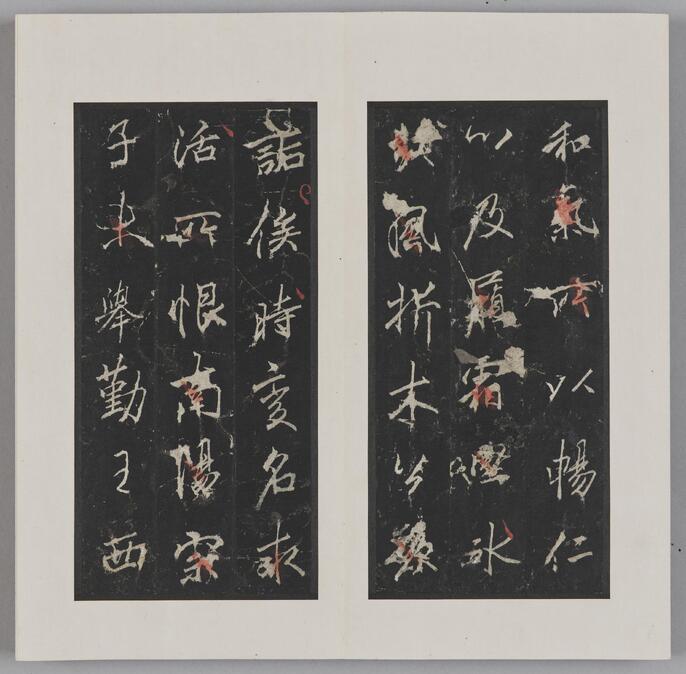 和氣所以暢仁
以及履霜堅冰
風折木公
俟時變名求
活所恨南陽宗
子未舉勤王西